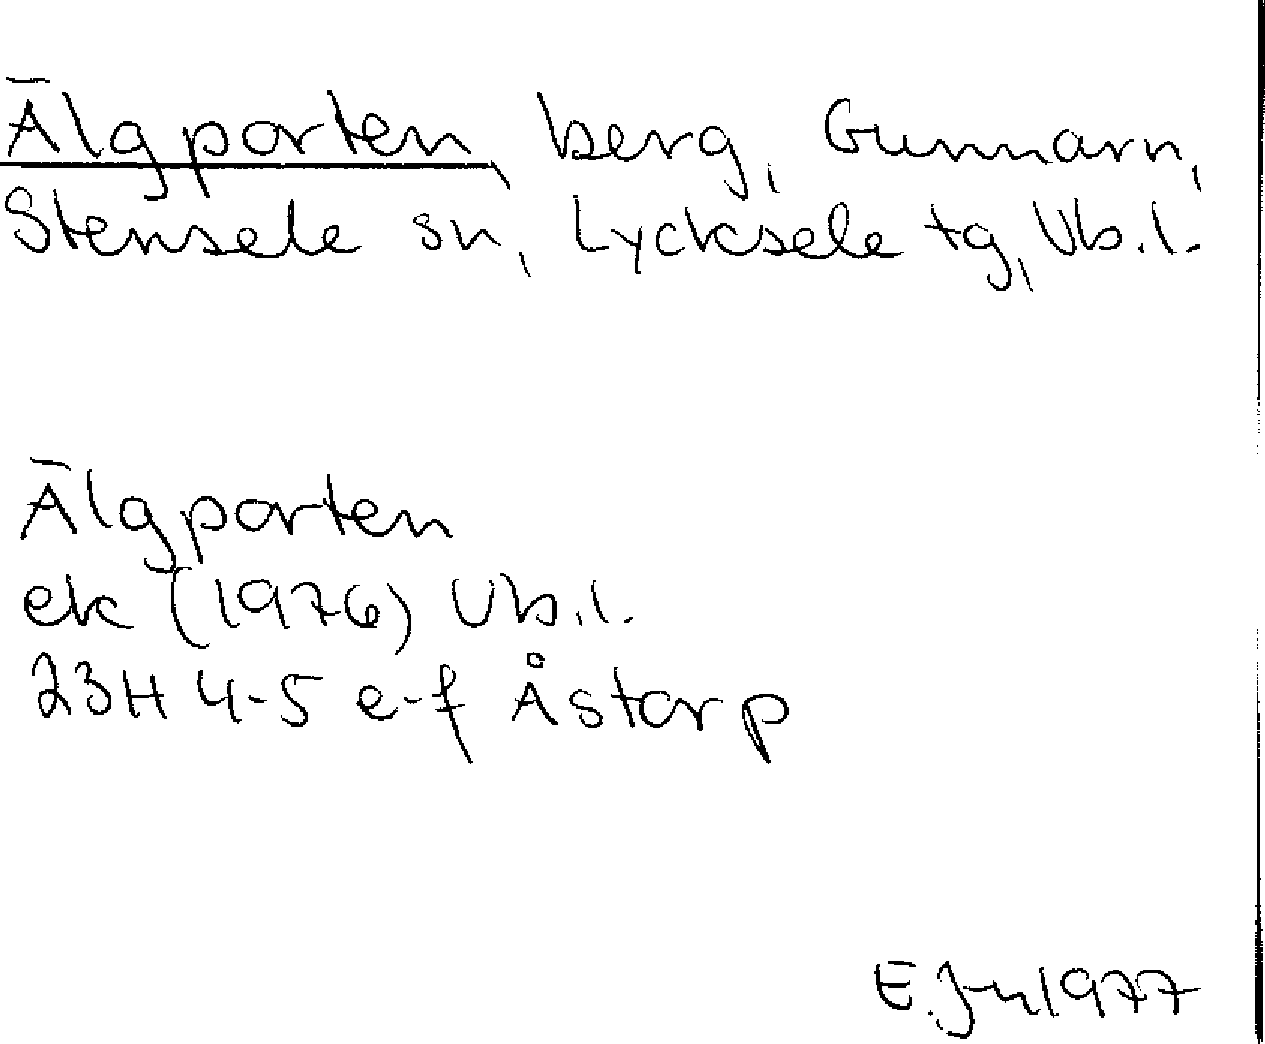 Älgporten, berg, Gunnarn,
Stensele sn, Lycksele tg, Vb.l.
Älgporten
ek (1976) Vb.l.
23H 4-5 e-f Åstorp
E. Jn 1977